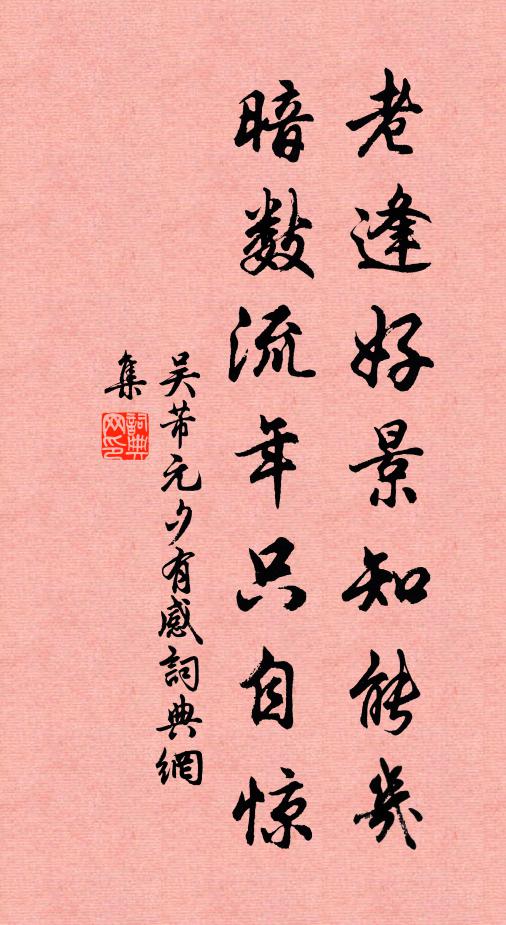 老逢好景知能幾
暗数流年只自惊
吴芾元夕有感詞典網
集
詞典
网印